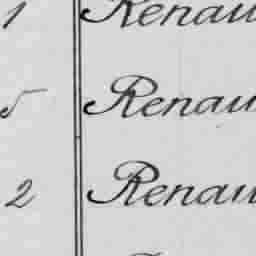 1 Renau
5 Renau
2 Renau